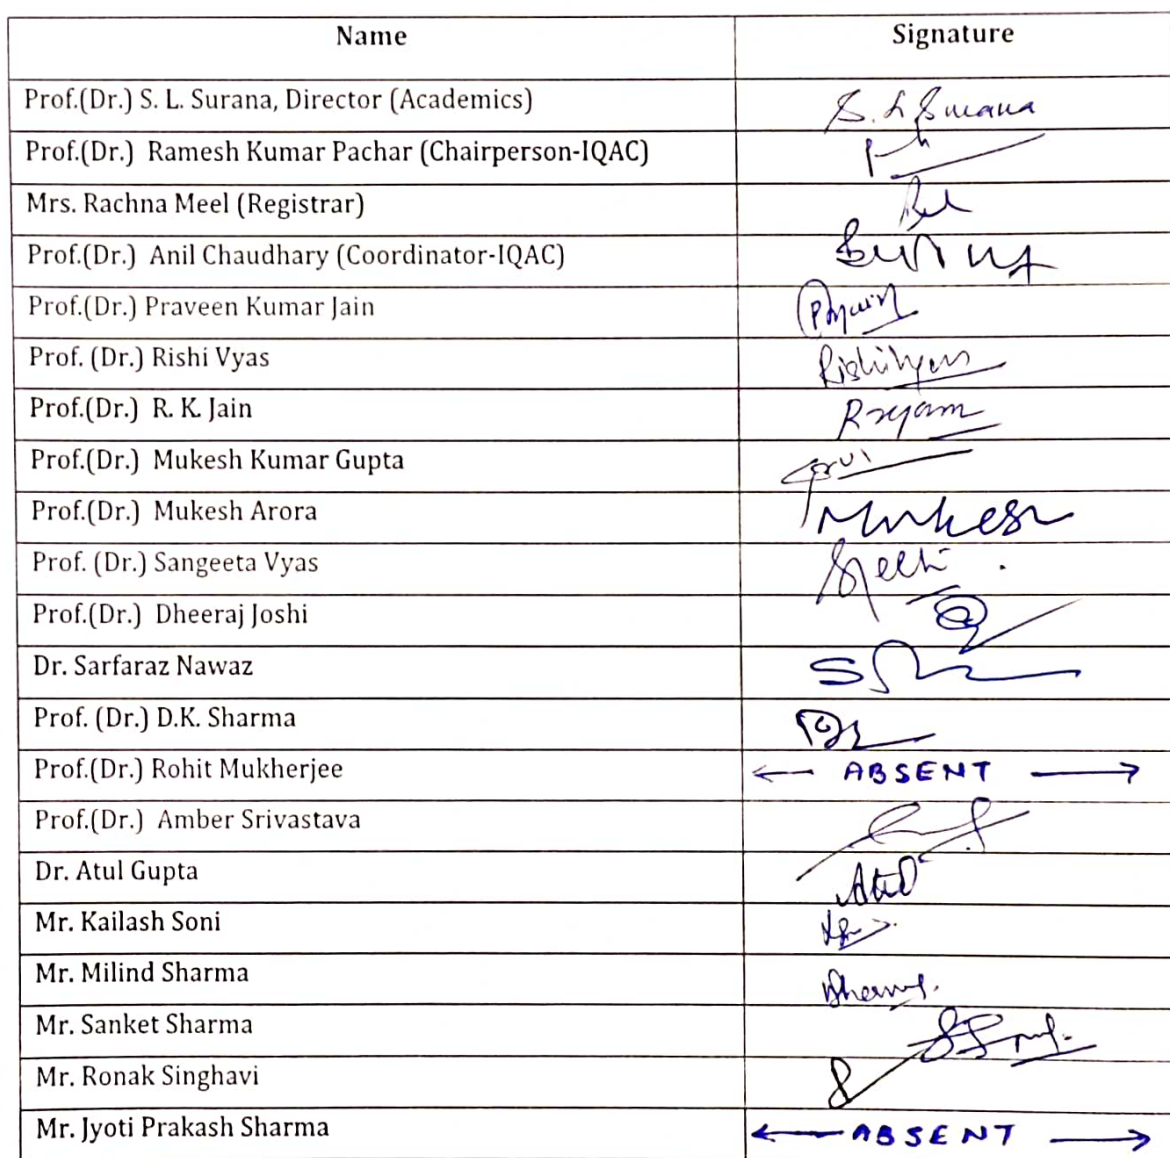 Name Signature
Prof.(Dr.) S. L. Surana, Director (Academics) S. L Surana
Prof.(Dr.) Ramesh Kumar Pachar (Chairperson-IQAC)
Mrs. Rachna Meel (Registrar)
Prof.(Dr.) Anil Chaudhary (Coordinator-IQAC)
Prof.(Dr.) Praveen Kumar Jain
Prof. (Dr.) Rishi Vyas Rishi Vyas
Prof.(Dr.) R. K. Jain
Prof.(Dr.) Mukesh Kumar Gupta
Prof.(Dr.) Mukesh Arora Mukesh
Prof. (Dr.) Sangeeta Vyas
Prof.(Dr.) Dheeraj Joshi
Dr. Sarfaraz Nawaz
Prof. (Dr.) D.K. Sharma
Prof.(Dr.) Rohit Mukherjee ← ABSENT →
Prof.(Dr.) Amber Srivastava
Dr. Atul Gupta Atul
Mr. Kailash Soni
Mr. Milind Sharma
Mr. Sanket Sharma
Mr. Ronak Singhavi
Mr. Jyoti Prakash Sharma ← ABSENT →